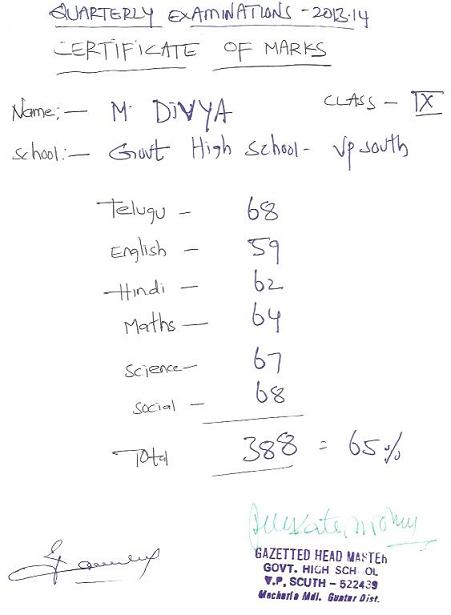 QUARTERLY EXAMINATIONS - 2013-14
CERTIFICATE OF MARKS
Name:- M. DIVYA CLASS - IX
School:- Govt High School- Vp south
Telugu - 68
English - 59
Hindi - 62
Maths - 64
Science - 67
Social - 68
Total 388 = 65%
GAZETTED HEAD MASTER
GOVT. HIGH SCHOOL
V.P. SOUTH - 522439
Macherla Mdl. Guntur Dist.